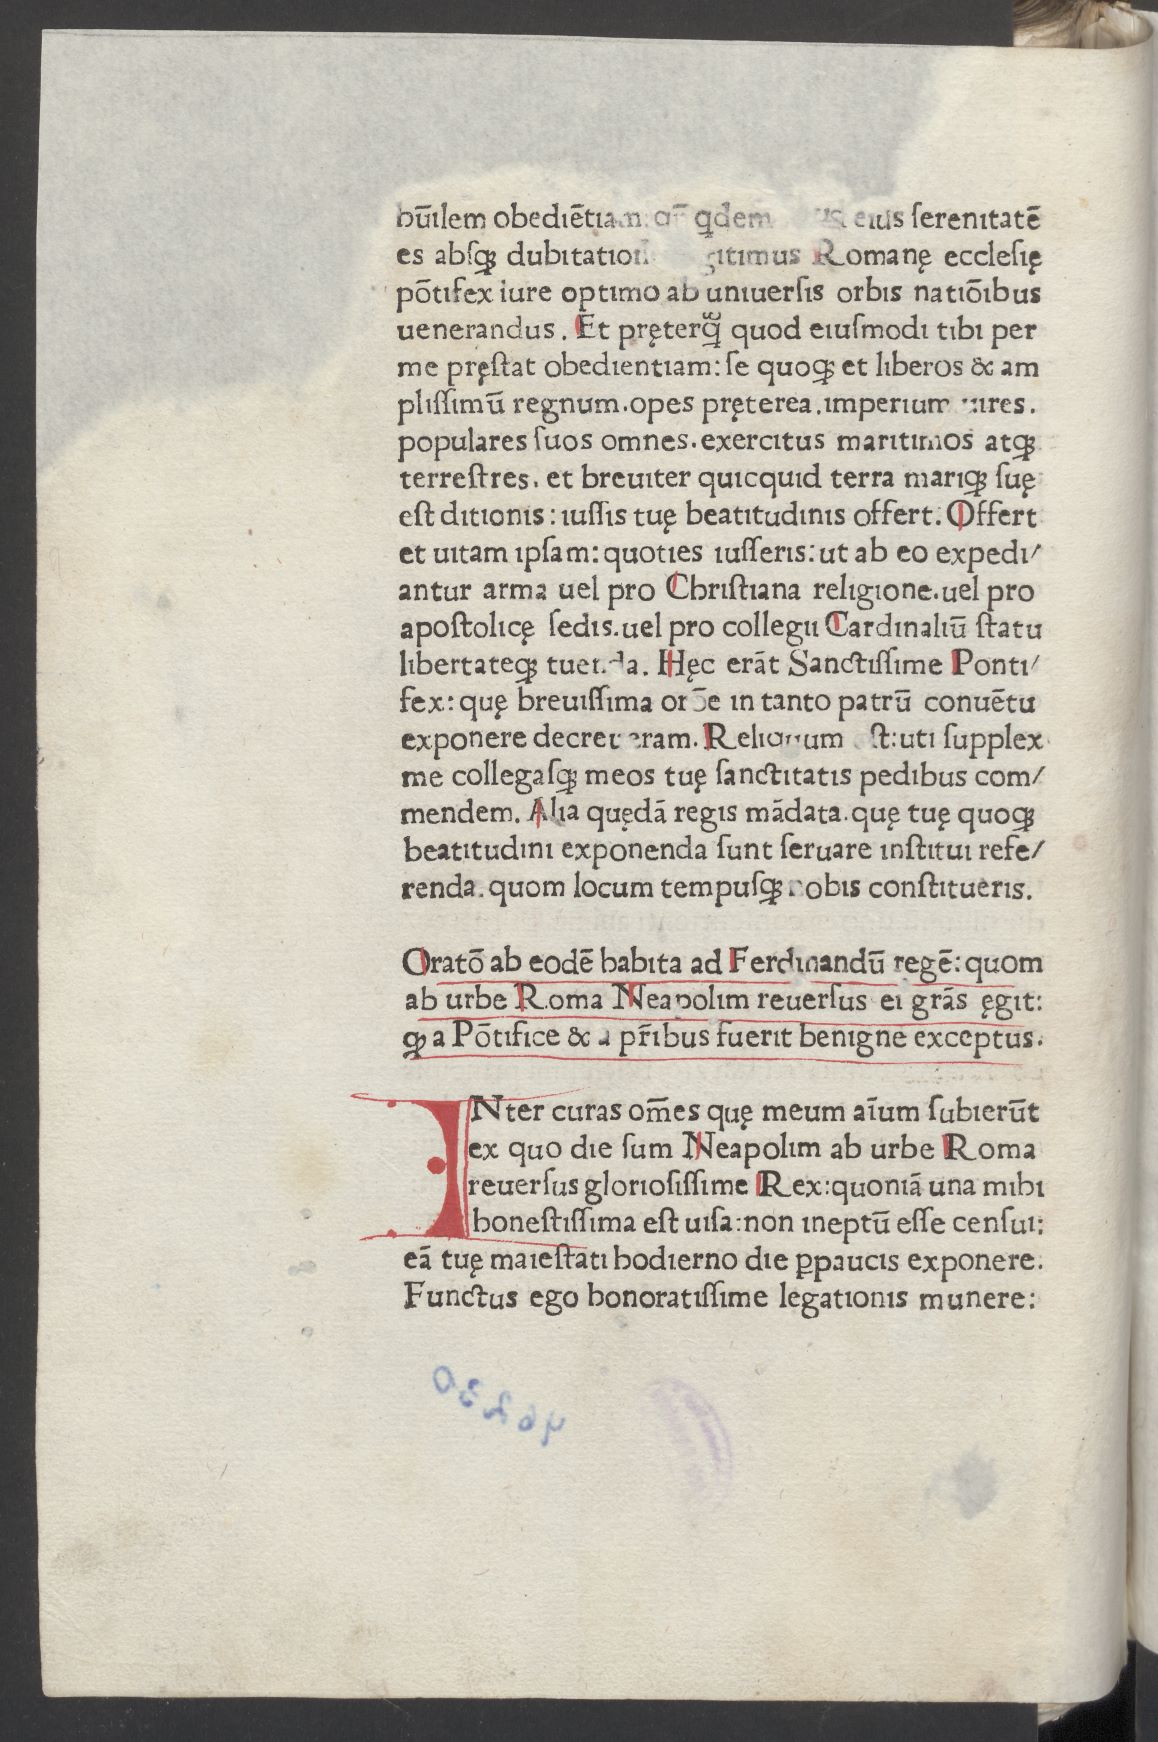 hūılem obedıētıam: qdem eıus ſerenıtatē
es abſqꝫ dubıtatıon gıtımus Romanę eccleſıę
pōtıfex ıure optımo ab unıuerſıs orbıs natıōıbus
uenerandus. Et pręterq̃ quod eıuſmodı tıbı per
me pręſtat obedıentıam: ſe quoqꝫ et lıberos & am
plıſſımū regnum. opes pręterea. ımperıum uıres.
populares ſuos omnes. exercıtus marıtımos atqꝫ
terreſtres. et breuıter quıcquıd terra marıqꝫ ſuę
eſt dıtıonıs: ıuſſıs tuę beatıtudınıs offert. Offert
et uıtam ıpſam: quotıes ıuſſerıs: ut ab eo expedı/
antur arma uel pro Chrıſtıana relıgıone. uel pro
apoſtolıcę ſedıs. uel pro collegıı Cardınalıū ſtatu
lıbertateqꝫ tuenda. Hęc erāt Sanctıſſıme Pontı/
fex: quę breuıſſıma orōe ın tanto patrū conuētu
exponere decreueram. Relıquum eſt: utı ſupplex
me collegaſqꝫ meos tuę ſanctıtatıs pedıbus com/
mendem. Alıa quędā regıs mādata. quę tuę quoqꝫ
beatıtudını exponenda ſunt ſeruare ınſtıtuı refe/
renda. quom locum tempuſqꝫ nobıs conſtıtuerıs.
Oratō ab eodē habıta ad Ferdınandū regē: quom
ab urbe Roma Neapolım reuerſus eı grās ęgıt:
qꝫ a Pōtıfıce & a pr̄ıbus fuerıt benıgne exceptus.
INter curas om̄es quę meum aīum ſubıerūt
ex quo dıe ſum Neapolım ab urbe Roma
reuerſus glorıoſıſſıme Rex: quonıā una mıhı
honeſtıſſıma eſt uıſa: non ıneptū eſſe cenſuı:
eā tuę maıeſtatı hodıerno dıe ꝑpaucıs exponere.
Functus ego honoratıſſıme legatıonıs munere:
46230